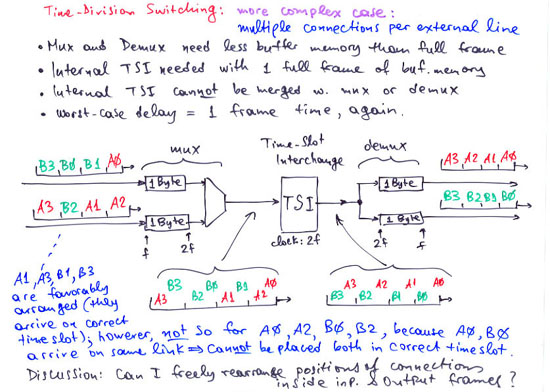 Time-Division Switching: more complex case:
multiple connections per external line
• Mux and Demux need less buffer memory than full frame
• Internal TSI needed with 1 full frame of buf. memory
• Internal TSI cannot be merged w. mux or demux
• worst-case delay = 1 frame time, again.
mux
Time-Slot
Interchange
demux
B3 BØ B1 AØ
1 Byte
A3 B2 A1 A2
1 Byte
f
2f
TSI
clock: 2f
1 Byte
A3 A2 A1 AØ
1 Byte
B3 B2 B1 BØ
2f
f
B3 BØ B1 AØ
A3 B2 A1 A2
A3 A2 A1 AØ
B3 B2 B1 BØ
A1, A3, B1, B3
are favorably
arranged (they
arrive on correct
timeslot); however, not so for AØ, A2, BØ, B2, because AØ, BØ
arrive on same link ⇒ cannot be placed both in correct timeslot.
Discussion: Can I freely rearrange positions of connections
inside inp. & output frames?